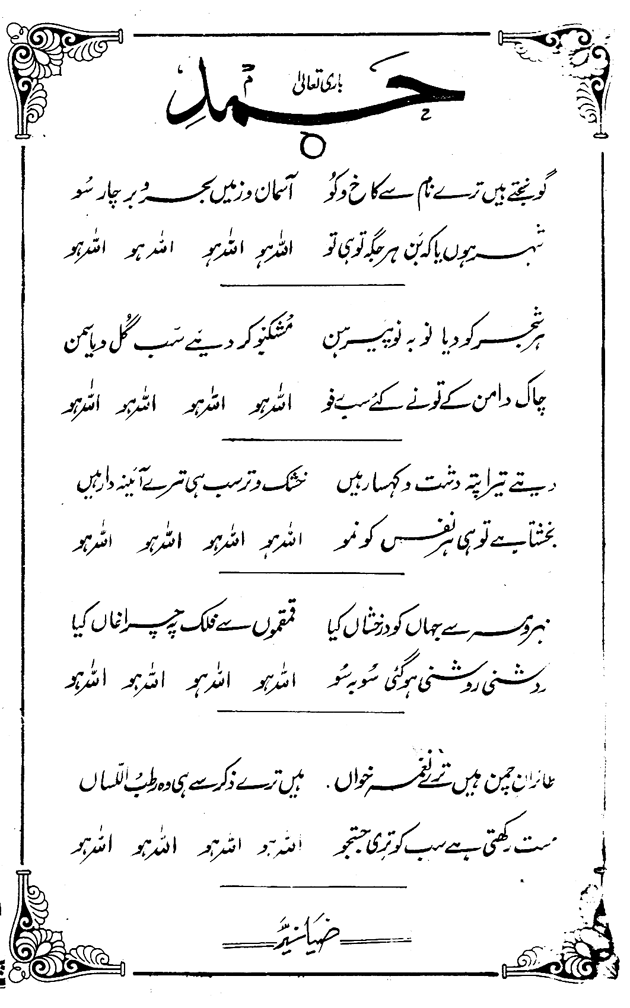 حمدِ باری تعالیٰ
گونجتے ہیں ترے نام سے کاخ و کُو آسمان و زمیں بحر و بر چار سُو
شہر ہوں یا کہ بَن ہر جگہ تو ہی تو اللہ ہو اللہ ہو اللہ ہو اللہ ہو
ہر شجر کو دیا نو بہ نو پیرہن مُشکبو کر دیئے سَب گُل و یاسمن
چاک دامن کے تو نے کئے سب رفو اللہ ہو اللہ ہو اللہ ہو اللہ ہو
دیتے تیرا پتہ دشت و کہسار ہیں خشک و تر سب ہی تیرے آئینہ دار ہیں
بخشتا ہے تو ہی ہر نفس کو نمو اللہ ہو اللہ ہو اللہ ہو اللہ ہو
سے جہاں کو درخشاں کیا قمقموں سے فلک پہ چراغاں کیا
روشنی روشنی ہو گئی سُو بہ سُو اللہ ہو اللہ ہو اللہ ہو اللہ ہو
طائرانِ چمن ہیں ترے نغمہ خواں ہیں ترے ذکر سے ہی وہ رطبُ اللّساں
مست رکھتی ہے سب کو تری جستجو اللہ ہو اللہ ہو اللہ ہو اللہ ہو
ضیا نیّر